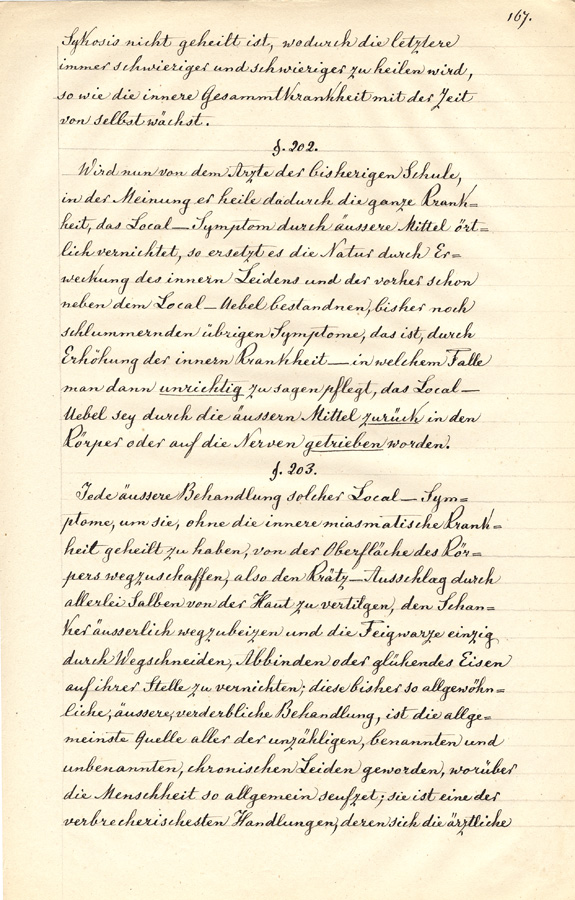 167.
Sykosis nicht geheilt ist, wodurch die letztere
immer schwieriger und schwieriger zu heilen wird,
so wie die innere Gesammtkrankheit mit der Zeit
von selbst wächst.
§. 202.
Wird nun von dem Arzte der bisherigen Schule,
in der Meinung er heile dadurch die ganze Krank=
heit, das Local—Symptom durch äussere Mittel ört=
lich vernichtet, so ersetzt es die Natur durch Er=
weckung des innern Leidens und der vorher schon
neben dem Local—Uebel bestandnen, bisher noch
schlummernden übrigen Symptome, das ist, durch
Erhöhung der innern Krankheit — in welchem Falle
man dann unrichtig zu sagen pflegt, das Local—
Uebel sey durch die äussern Mittel zurück in den
Körper oder auf die Nerven getrieben worden.
§. 203.
Jede äussere Behandlung solcher Local—Sym=
ptome, um sie, ohne die innere miasmatische Krank=
heit geheilt zu haben, von der Oberfläche des Kör=
pers wegzuschaffen, also den Krätz—Ausschlag durch
allerlei Salben von der Haut zu vertilgen, den Schan=
ker äusserlich wegzubeizen und die Feigwarze einzig
durch Wegschneiden, Abbinden oder glühendes Eisen
auf ihrer Stelle zu vernichten; diese bisher so allgewöhn=
liche, äussere, verderbliche Behandlung, ist die allge=
meinste Quelle aller der unzähligen, benannten und
unbenannten, chronischen Leiden geworden, worüber
die Menschheit so allgemein seufzet; sie ist eine der
verbrecherischesten Handlungen, deren sich die ärztliche